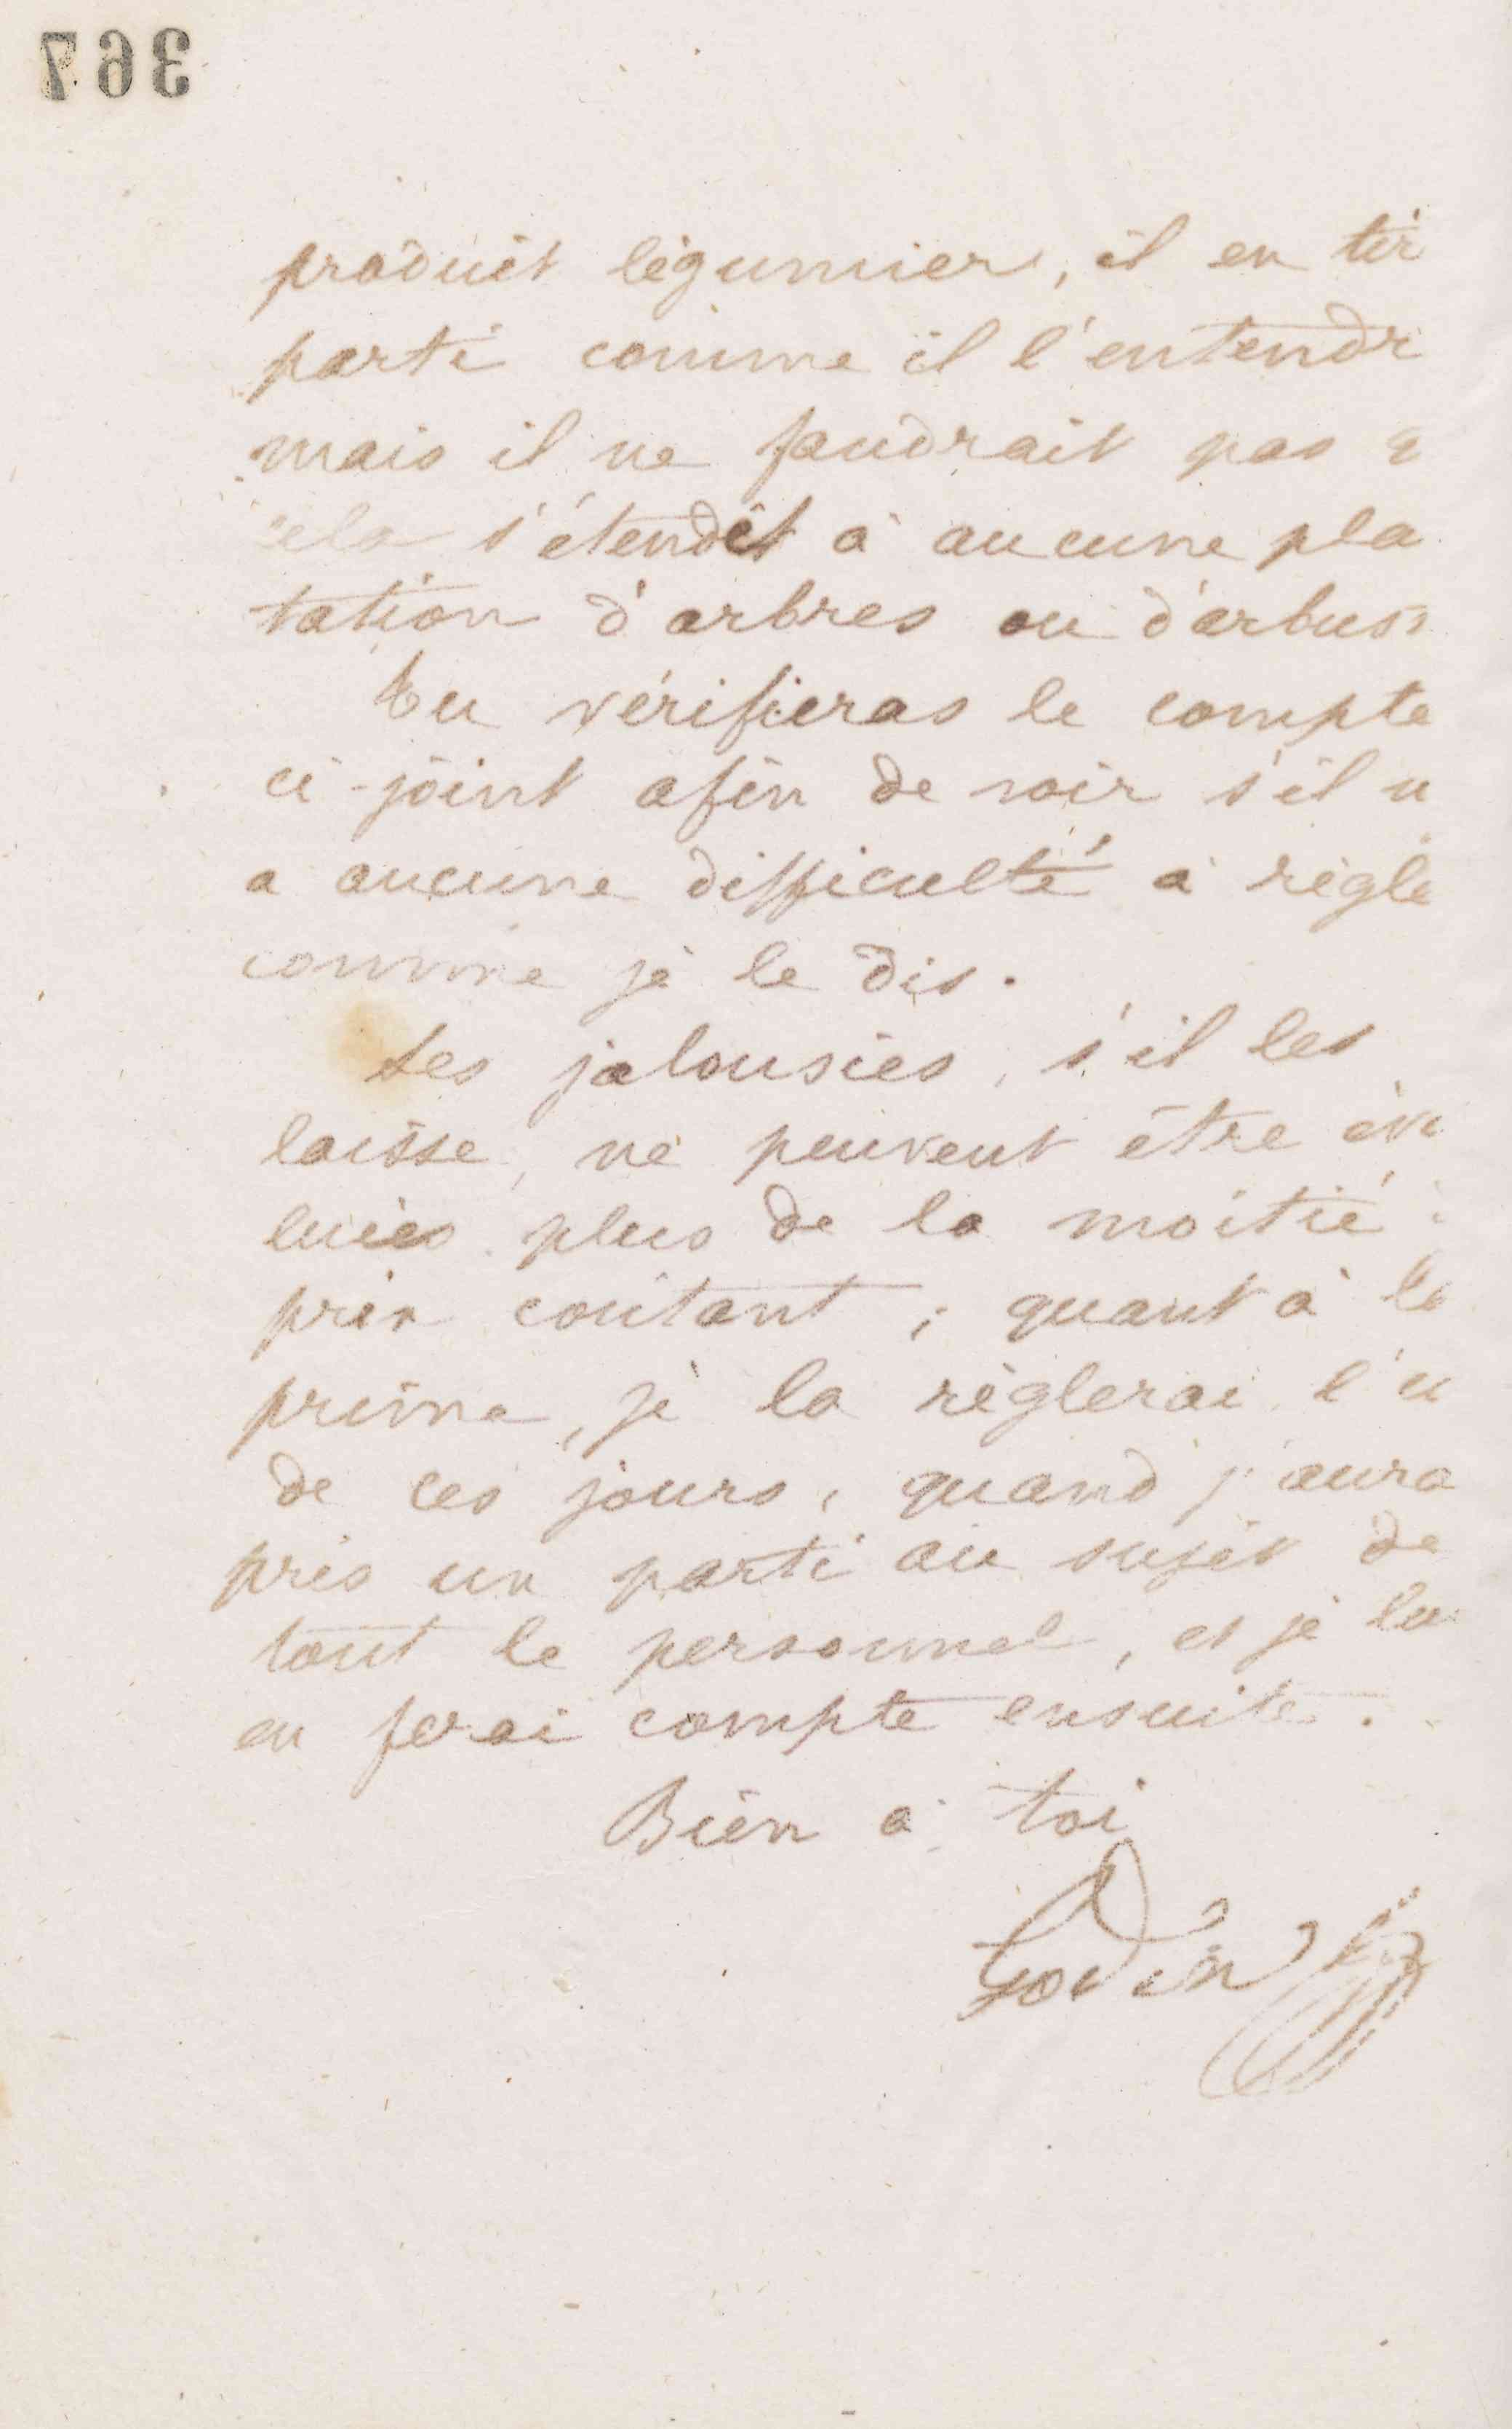 367
produit légumier, il en tir
parti comme il l'entendr
mais il ne faudrait pas q
cela s'étendît à aucune pla
tation d'arbres ou d'arbus
Tu vérifieras le compte
ci-joint afin de voir s'il n
a aucune difficulté à régle
comme je le dis.
Les jalousies, s'il les
laisse, ne peuvent être éva
luées plus de la moitié
prix coûtant ; quant à la
prime, je la règlerai l'u
de ces jours, quand j'aura
pris un parti au sujet de
tout le personnel, et je lu
en ferai compte ensuite.
Bien à toi
Godin